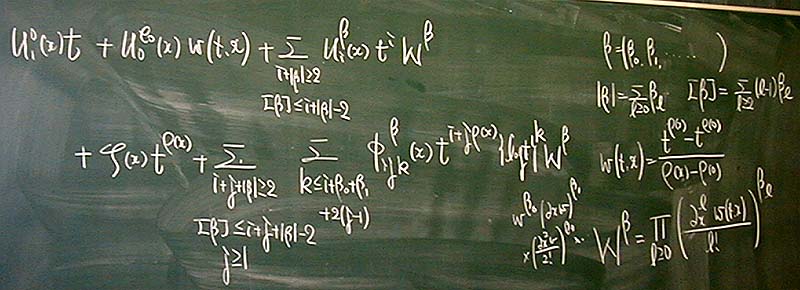 u_i^0(x)t + u_0^{e_0}(x) w(t,x) + Σ_{i+|β|≥2, [β]≤i+|β|-2} u_i^β(x) t^i W^β
+ φ(x) t^{ρ(x)} + Σ_{i+j+|β|≥2, [β]≤i+j+|β|-2, j≥1} Σ_{k≤i+β_0+β_1+2(j-1)} φ_{ijk}^β(x) t^{i+jρ(x)} {log t}^k W^β
β=(β_0, β_1, ......)
|β|=Σ_{l≥0} β_l [β]=Σ_{l≥2} (l-1)β_l
w(t,x) = (t^{ρ(0)} - t^{ρ(0)}) / (ρ(x)-ρ(0))
w^{β_0} (∂_x w)^{β_1}
W^β = Π_{l≥0} (∂_x^l w(t,x) / l!)^{β_l}